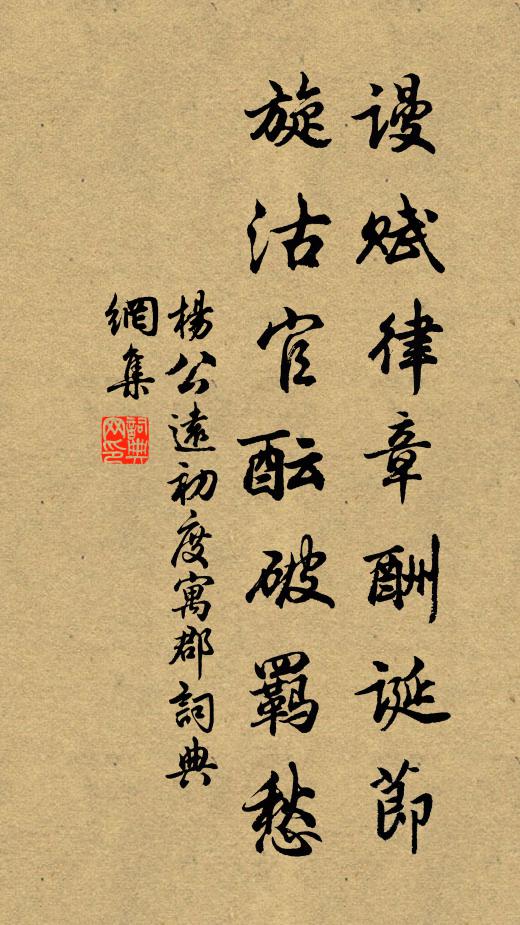 謾賦律章酬誕節
旋沽官酝破羁愁
楊公遠初度寓郡詞典
網集
詞典
网印